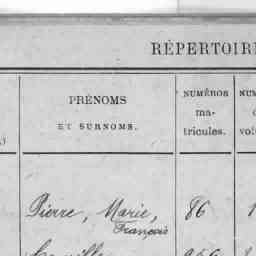 RÉPERTOIRE
PRÉNOMS
ET SURNOMS.
NUMÉROS
ma-
tricules.
Pierre, Marie, 86
François